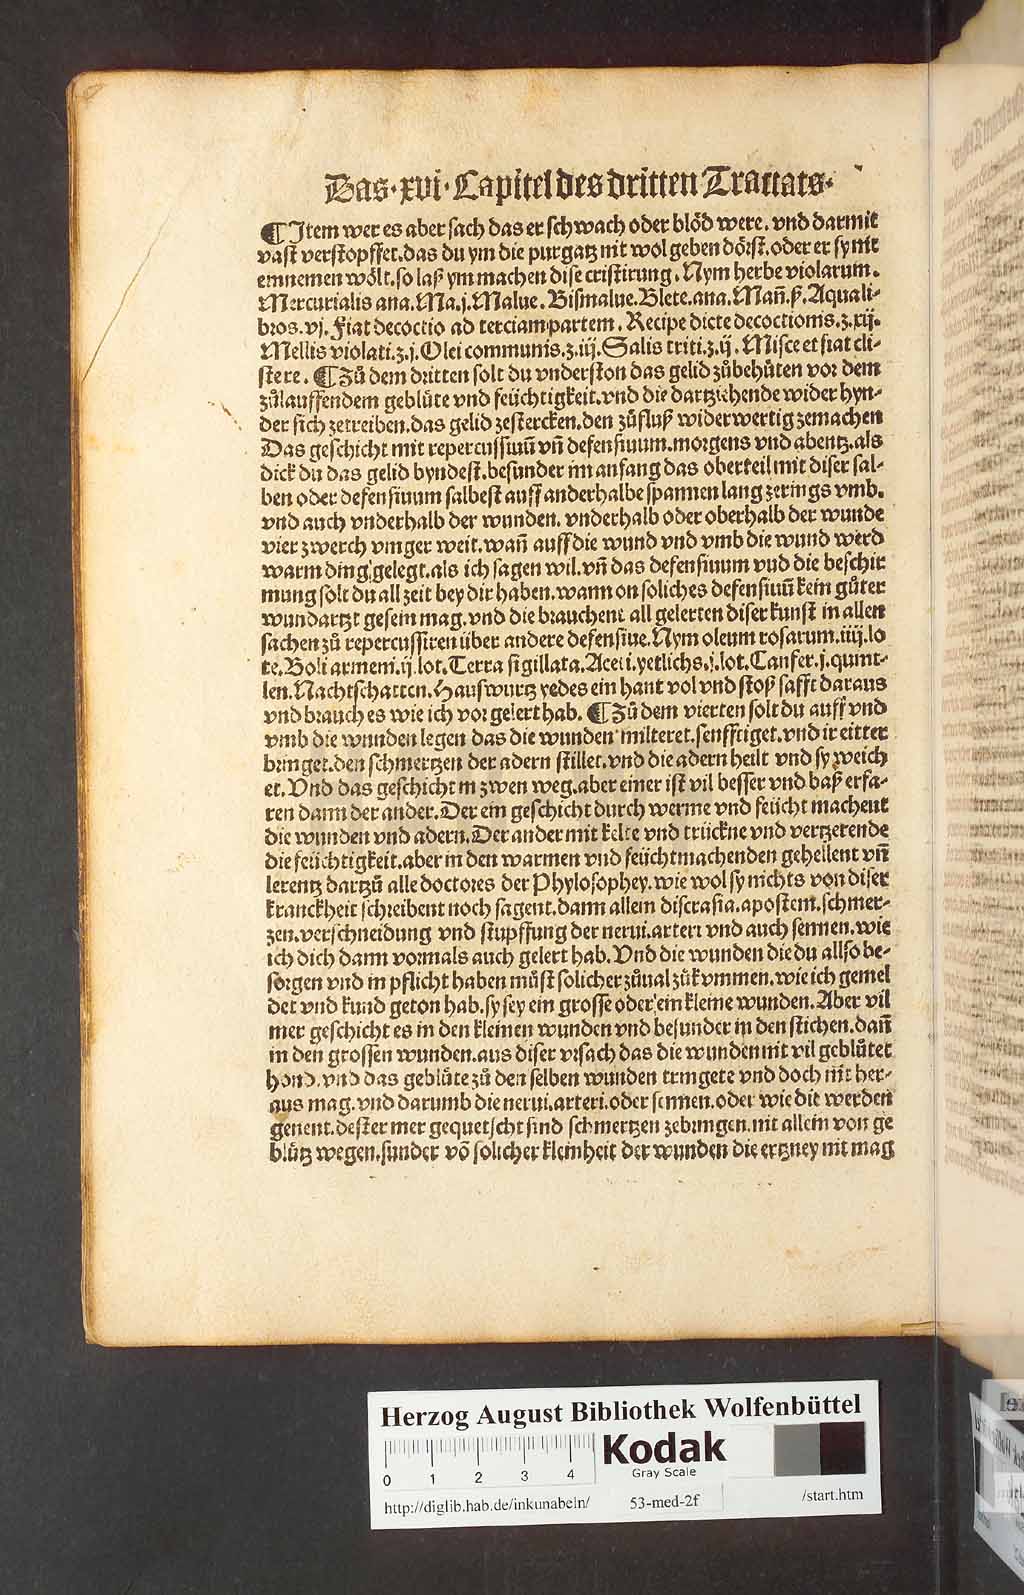 Das·xvi·Capitel des dritten Tractats·
¶Item wer es aber sach das er schwach oder blöd were. vnd darmit
vast verstopffet.das du ym die purgatz nit wol geben dörst.oder er sy nit
einnemen wölt.so laß ym machen dise cristirung. Nym herbe violarum.
Mercurialis ana. Ma.j. Malue. Bismalue. Blete. ana. Mañ.ß. Aque li-
bros. vj. Fiat decoctio ad terciam partem. Recipe dicte decoctionis.ʒ.xij.
Mellis violati.ʒ.j. Olei communis.ʒ.iij. Salis triti.ʒ.ij. Misce et fiat cli-
stere. ¶Zů dem dritten solt du vnderston das gelid zůbehůten vor dem
zůlauffendem geblüte vnd feüchtigkeit.vnd die dartziehende wider hyn-
der sich zetreiben.das gelid zestercken.den zůfluß widerwertig zemachen
Das geschicht mit repercussiuũ vñ defensiuum.morgens vnd abentz.als
dick du das gelid byndest.besunder im anfang das oberteil mit diser sal-
ben oder defensiuum salbest auff anderhalbe spannen lang zerings vmb.
vnd auch vnderhalb der wunden. vnderhalb oder oberhalb der wunde
vier zwerch vinger weit.wañ auff die wund vnd vmb die wund werd
warm ding gelegt.als ich sagen wil.vñ das defensiuum vnd die beschir
mung solt du all zeit bey dir haben.wann on soliches defensiuũ kein gůter
wundartzt gesein mag.vnd die brauchent all gelerten diser kunst in allen
sachen zů repercussiren über andere defensiue.Nym oleum rosarum.iiij.lo
te.Boli armeni.ij.lot.Terra sigillata.Aceti.yetlichs.j.lot.Canfer.j.quint-
len.Nachtschatten.Hauswurtz yedes ein hant vol vnd stoß safft daraus
vnd brauch es wie ich vor gelert hab. ¶Zů dem vierten solt du auff vnd
vmb die wunden legen das die wunden milteret.senfftiget.vnd ir eitter
bringet.den schmertzen der adern stillet.vnd die adern heilt vnd sy weich
et. Vnd das geschicht in zwen weg.aber einer ist vil besser vnd baß erfa-
ren dann der ander. Der ein geschicht durch werme vnd feücht machent
die wunden vnd adern. Der ander mit kelte vnd trückne vnd vertzerende
die feüchtigkeit.aber in den warmen vnd feüchtmachenden gehellent vñ
lerentz dartzů alle doctores der Phylosophey.wie wol sy nichts von diser
kranckheit schreibent noch sagent.dann allein discrasia.apostem.schmer-
zen.verschneidung vnd stupffung der nerui.arteri vnd auch sennen.wie
ich dich dann vormals auch gelert hab. Vnd die wunden die du allso be-
sorgen vnd in pflicht haben můst solicher zůual zůkummen.wie ich gemel
det vnd kund geton hab.sy sey ein grosse oder ein kleine wunden. Aber vil
mer geschicht es in den kleinen wunden vnd besunder in den stichen.dañ
in den grossen wunden.aus diser vrsach das die wunden nit vil geblůtet
hond.vnd das geblüte zů den selben wunden tringete vnd doch nit her-
aus mag.vnd darumb die nerui.arteri.oder sennen.oder wie die werden
genent.dester mer gequetscht sind schmertzen zebringen.nit allein von ge
blütz wegen.sunder võ solicher kleinheit der wunden die ertzney nit mag
Herzog August Bibliothek Wolfenbüttel
0 1 2 3 4
Kodak
Gray Scale
http://diglib.hab.de/inkunabeln/ 53-med-2f /start.htm